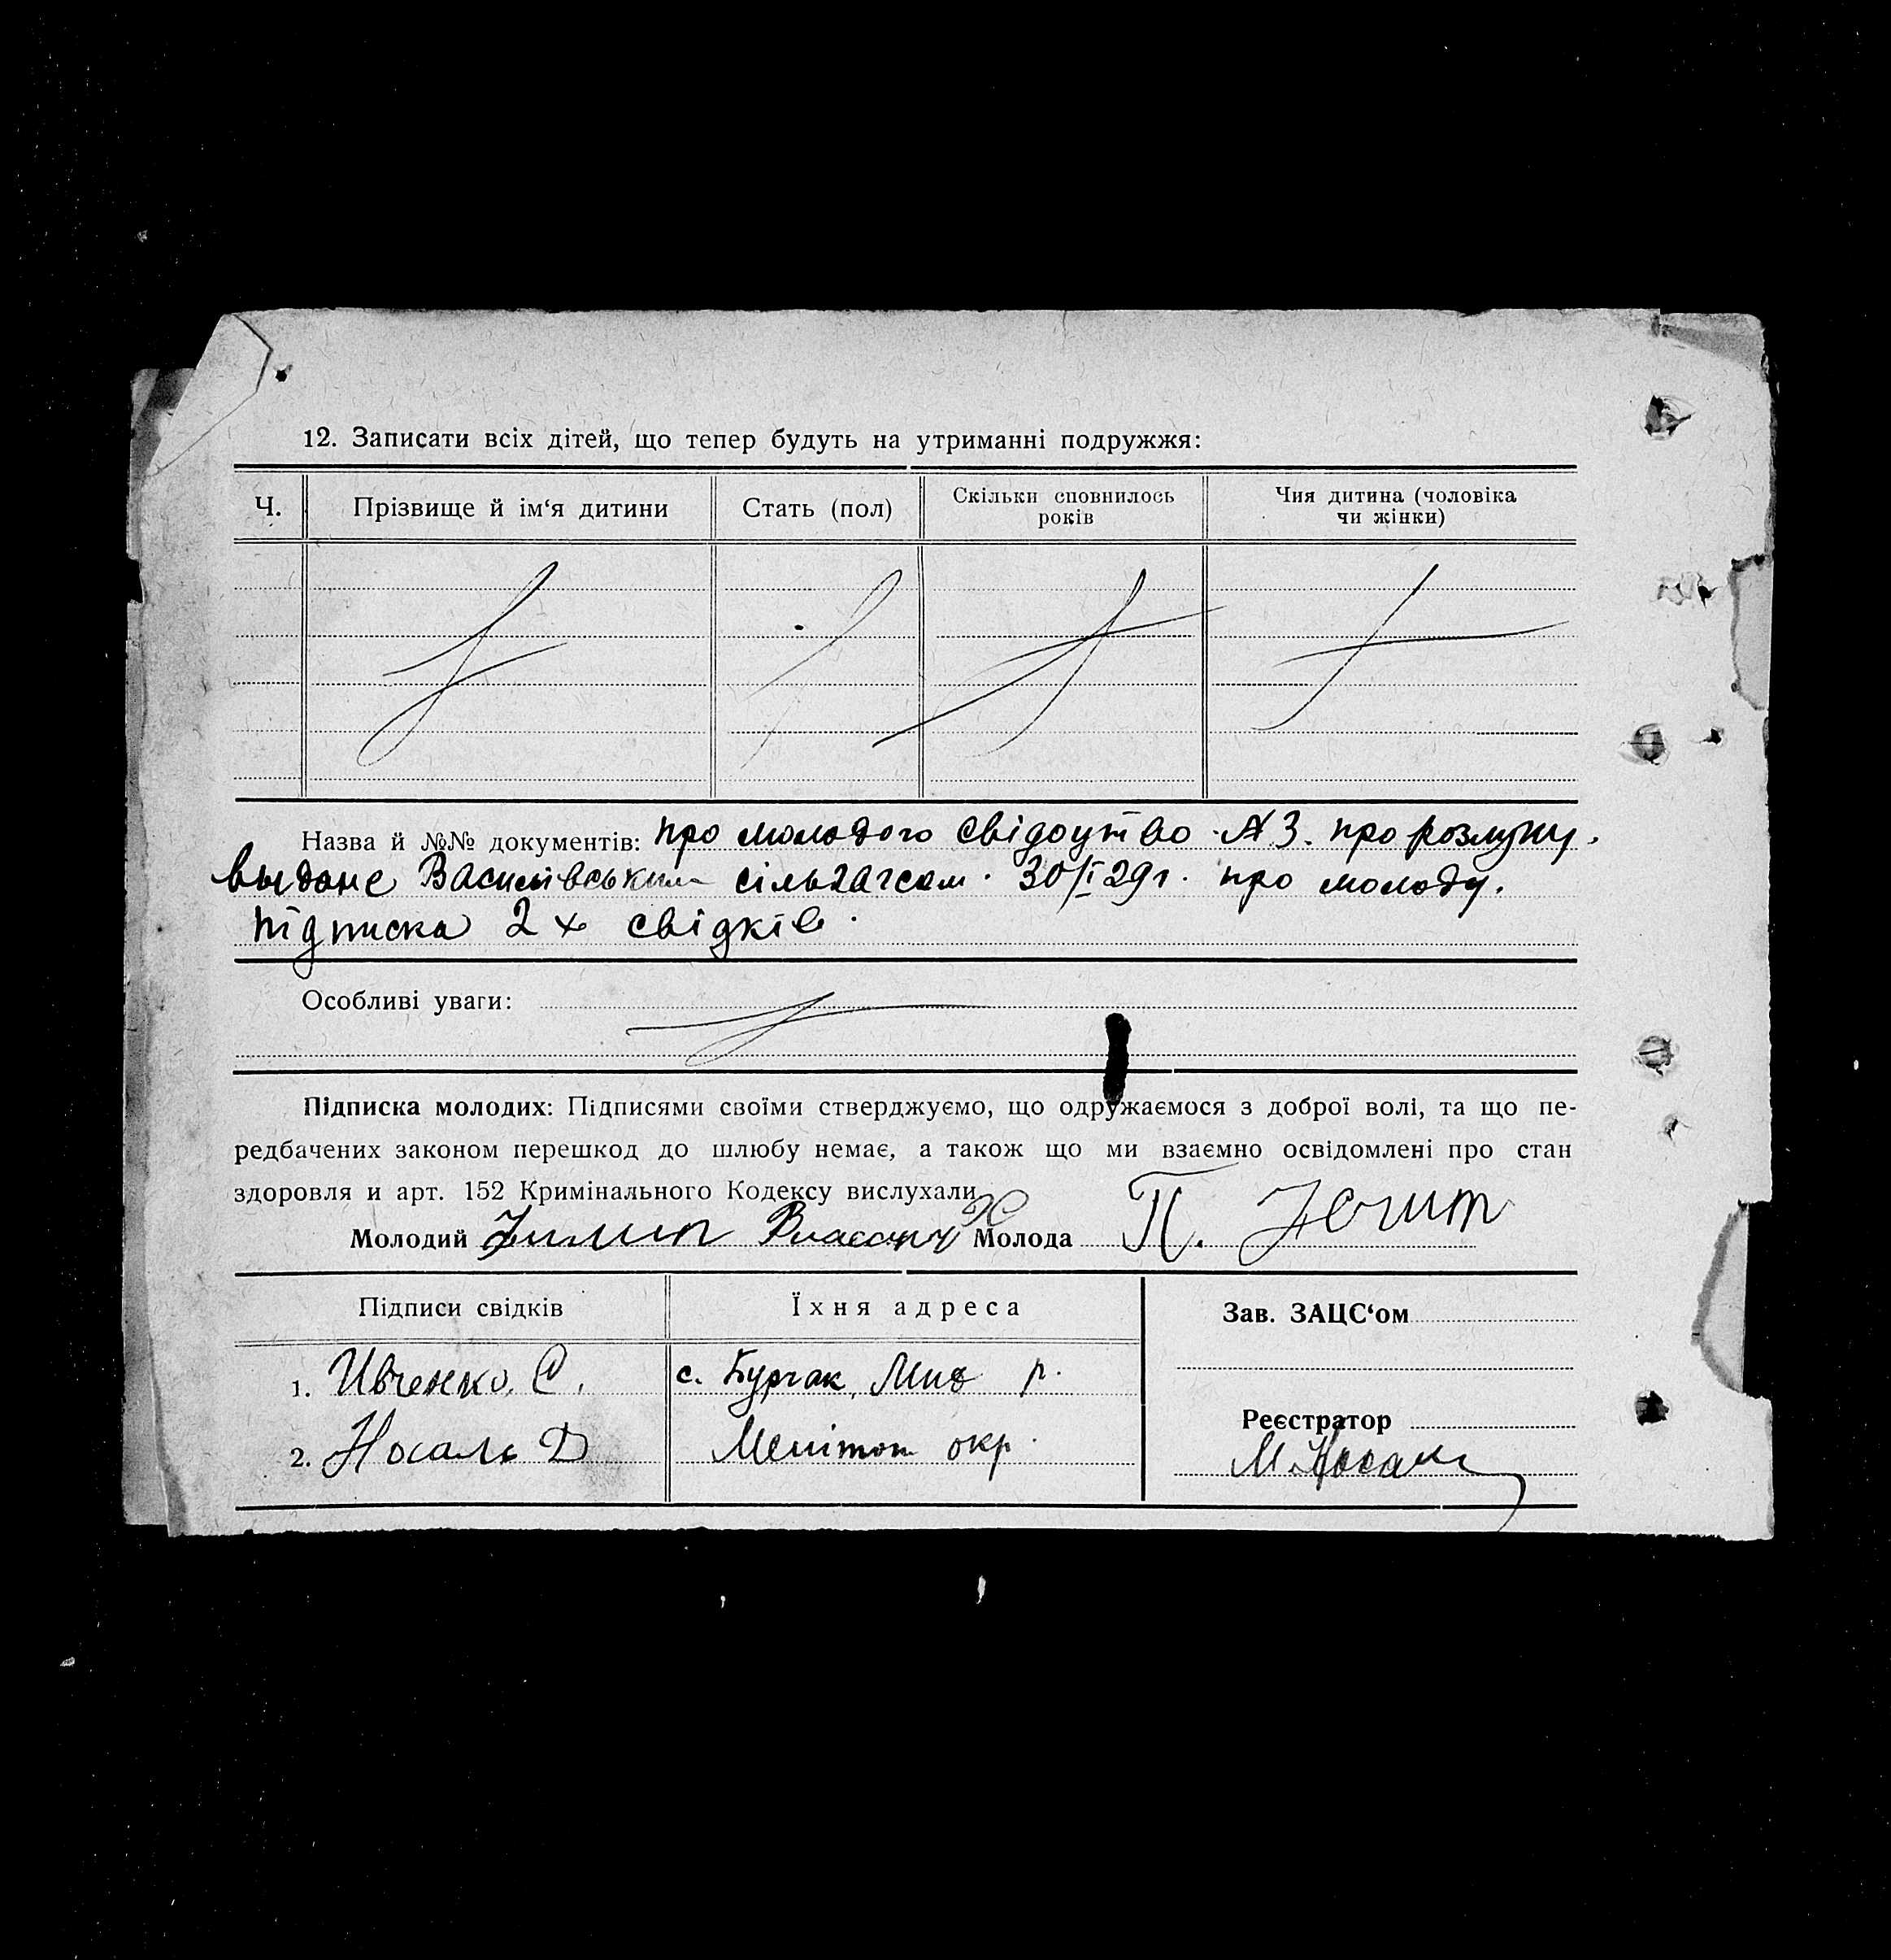 12. Записати всіх дітей, що тепер будуть на утриманні подружжя:
Ч. Прізвище й ім‘я дитини Стать (пол) Скільки сповнилось років Чия дитина (чоловіка чи жінки)
Назва й №№ документів: про молодого свідоцтво №3. про розлуку.
выдане Василівським сільзагсом. 30/I 29 г. про молоду.
підписка 2 х свідків.
Особливі уваги:
Підписка молодих: Підписями своїми стверджуємо, що одружаємося з доброї волі, та що пе-
редбачених законом перешкод до шлюбу немає, а також що ми взаємно освідомлені про стан
здоровля и арт. 152 Кримінального Кодексу вислухали
Молодий Молода П.
Підписи свідків Їхня адреса Зав. ЗАЦС‘ом
1. Ивченко. С. с. Бурчак, Мих р.
Реєстратор
2. Носаль Д Меліто окр.
М. Носаль